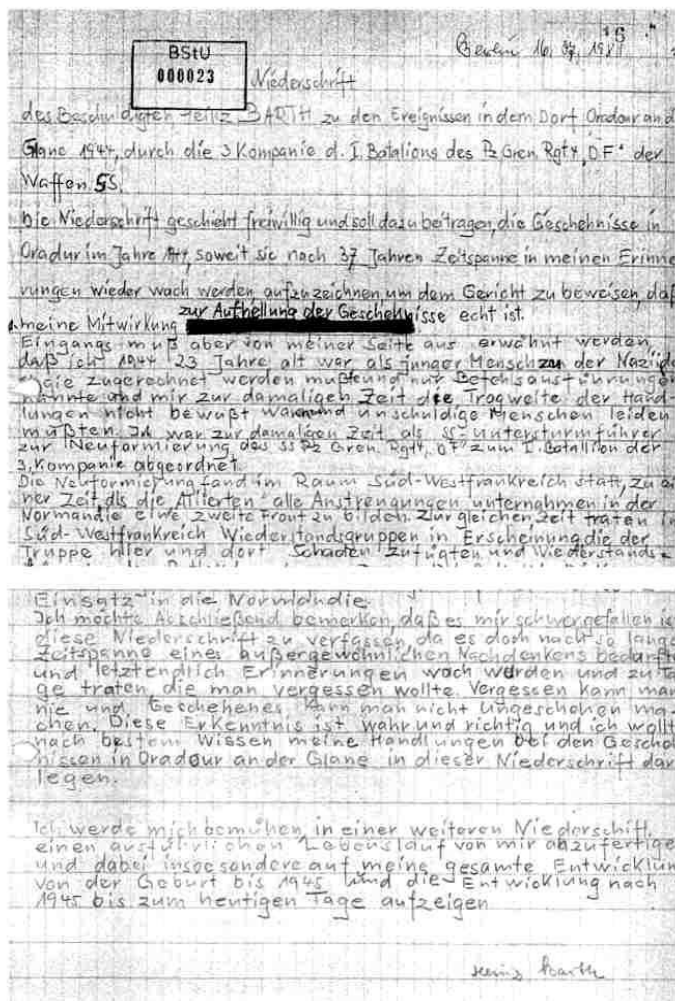 16
BStU
000023
Berlin 16. 07. 1981
Niederschrift
des Beschuldigten Heinz BARTH zu den Ereignissen in dem Dorf Oradour an d
Glane 1944, durch die 3 Kompanie d. I. Batalions des Pz Gren. Rgt 4 "DF" der
Waffen SS.
Die Niederschrift geschieht freiwillig und soll dazu beitragen, die Geschehnisse in
Oradur im Jahre 1944, soweit sie nach 37 Jahren Zeitspanne in meinen Erinne
rungen wieder wach werden aufzuzeichnen, um dem Gericht zu beweisen, daß
meine Mitwirkung zur Aufhellung der Geschehnisse echt ist.
Eingangs muß aber von meiner Seite aus erwähnt werden,
daß ich 1944 23 Jahre alt war als junger Mensch zu der Naziide
ologie zugerechnet werden mußte und nur Befehlsausführungen
kannte und mir zur damaligen Zeit die Tragweite der Hand-
lungen nicht bewußt war und unschuldige Menschen leiden
mußten. Ich war zur damaligen Zeit als SS-Untersturmführer
zur Neuformierung des SS Pz Gren. Rgt 4 "DF" zum I. Batallion der
3. Kompanie abgeordnet.
Die Neuformierung fand im Raum Süd-Westfrankreich statt, zu ei
ner Zeit, als die Alliierten alle Anstrengungen unternahmen in der
Normandie eine zweite Front zu bilden. Zur gleichen Zeit traten in
Süd-Westfrankreich Wiederstandsgruppen in Erscheinung die der
Truppe hier und dort Schaden zufügten und Wiederstands-
Einsatz in die Normandie.
Ich möchte Abschließend bemerken, daß es mir schwergefallen is
diese Niederschrift zu verfassen, da es doch nach so lange
Zeitspanne eines außergewöhnlichen Nachdenkens bedurfte
und letztendlich Erinnerungen wach wurden und zu Ta
ge traten, die man vergessen wollte. Vergessen kann man
nie und Geschehenes kann man nicht ungeschehen ma-
chen. Diese Erkenntnis ist wahr und richtig und ich wollt
nach bestem Wissen meine Handlungen bei den Gescheh
nissen in Oradour an der Glane in dieser Niederschrift dar
legen.
Ich werde mich bemühen, in einer weiteren Niederschrift,
einen ausführlichen Lebenslauf von mir anzufertige
und dabei insbesondere auf meine gesamte Entwicklun
von der Geburt bis 1945 und die Entwicklung nach
1945 bis zum heutigen Tage aufzeigen
Heinz Barth